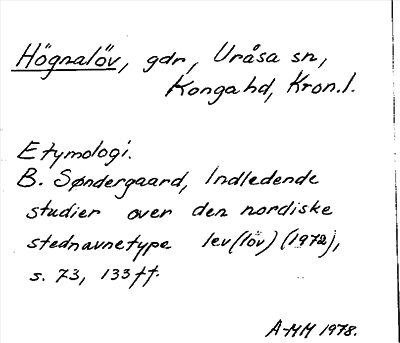 Högnalöv, gdr, Uråsa sn,
Konga hd, Kron.l.
Etymologi.
B. Søndergaard, Indledende
studier over den nordiske
stednavnetype lev(löv) (1972),
s. 73, 133ff.
A-MM 1978.